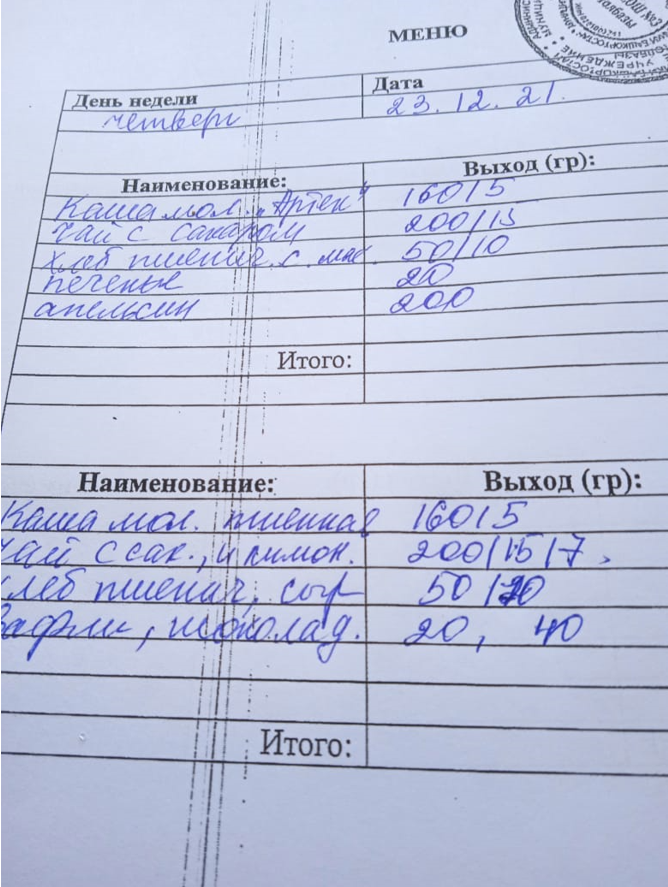 МЕНЮ
День недели Дата
четверг 23.12.21.
Наименование: Выход (гр):
Каша мол. „Артек" 160/5
чай с сахаром 200/15
хлеб пшенич. с. мас. 50/10
печенье 20
апельсин 200
Итого:
Наименование: Выход (гр):
Каша мол. пшенная 160/5
чай с сах., и лимон. 200/15/7.
хлеб пшенич, сыр 50/20
вафли, шоколад. 20, 40
Итого: